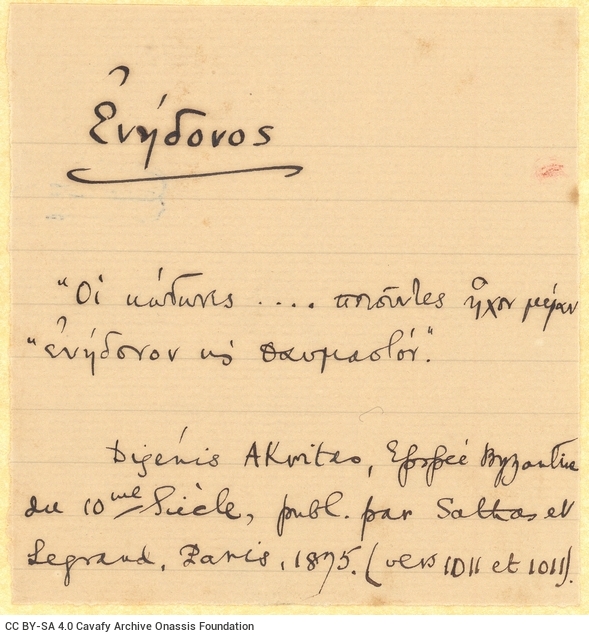 Ἐνήδονος
"Οἱ κώδωνες .... ποιοῦντες ἦχον μέγαν
"ἐνήδονον κὶ θαυμαστόν."
Digénis Akritas, Epopée Byzantine
du 10me Siècle, publ. par Sathas et
Legrand, Paris, 1875. (vers 1011 et 1011).
CC BY-SA 4.0 Cavafy Archive Onassis Foundation